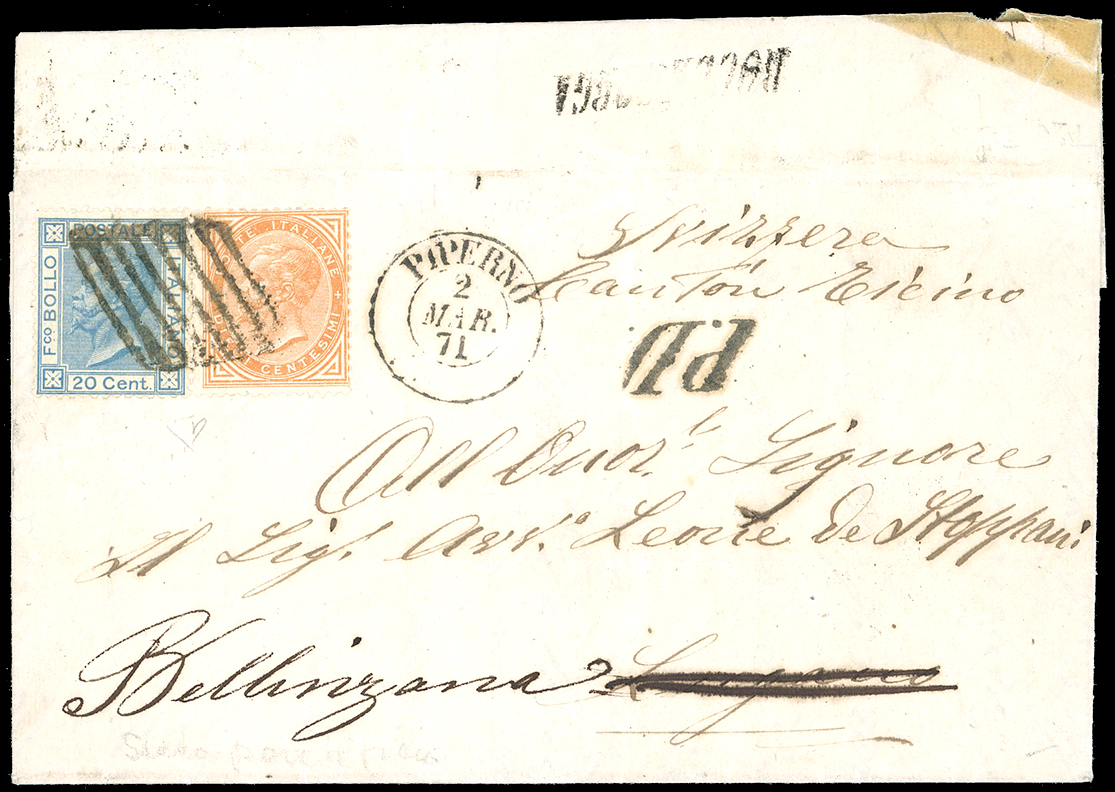 Svizzera
Canton Ticino
POSTALE
F.co BOLLO
ITALIANO
20 Cent.
POSTE ITALIANE
DIECI CENTESIMI
PIPERNO
2
MAR.
71
P.D
All' Onor.le Signore
Il Sig.r Avv.o Leone de Stoppani
Bellinzona Lugano